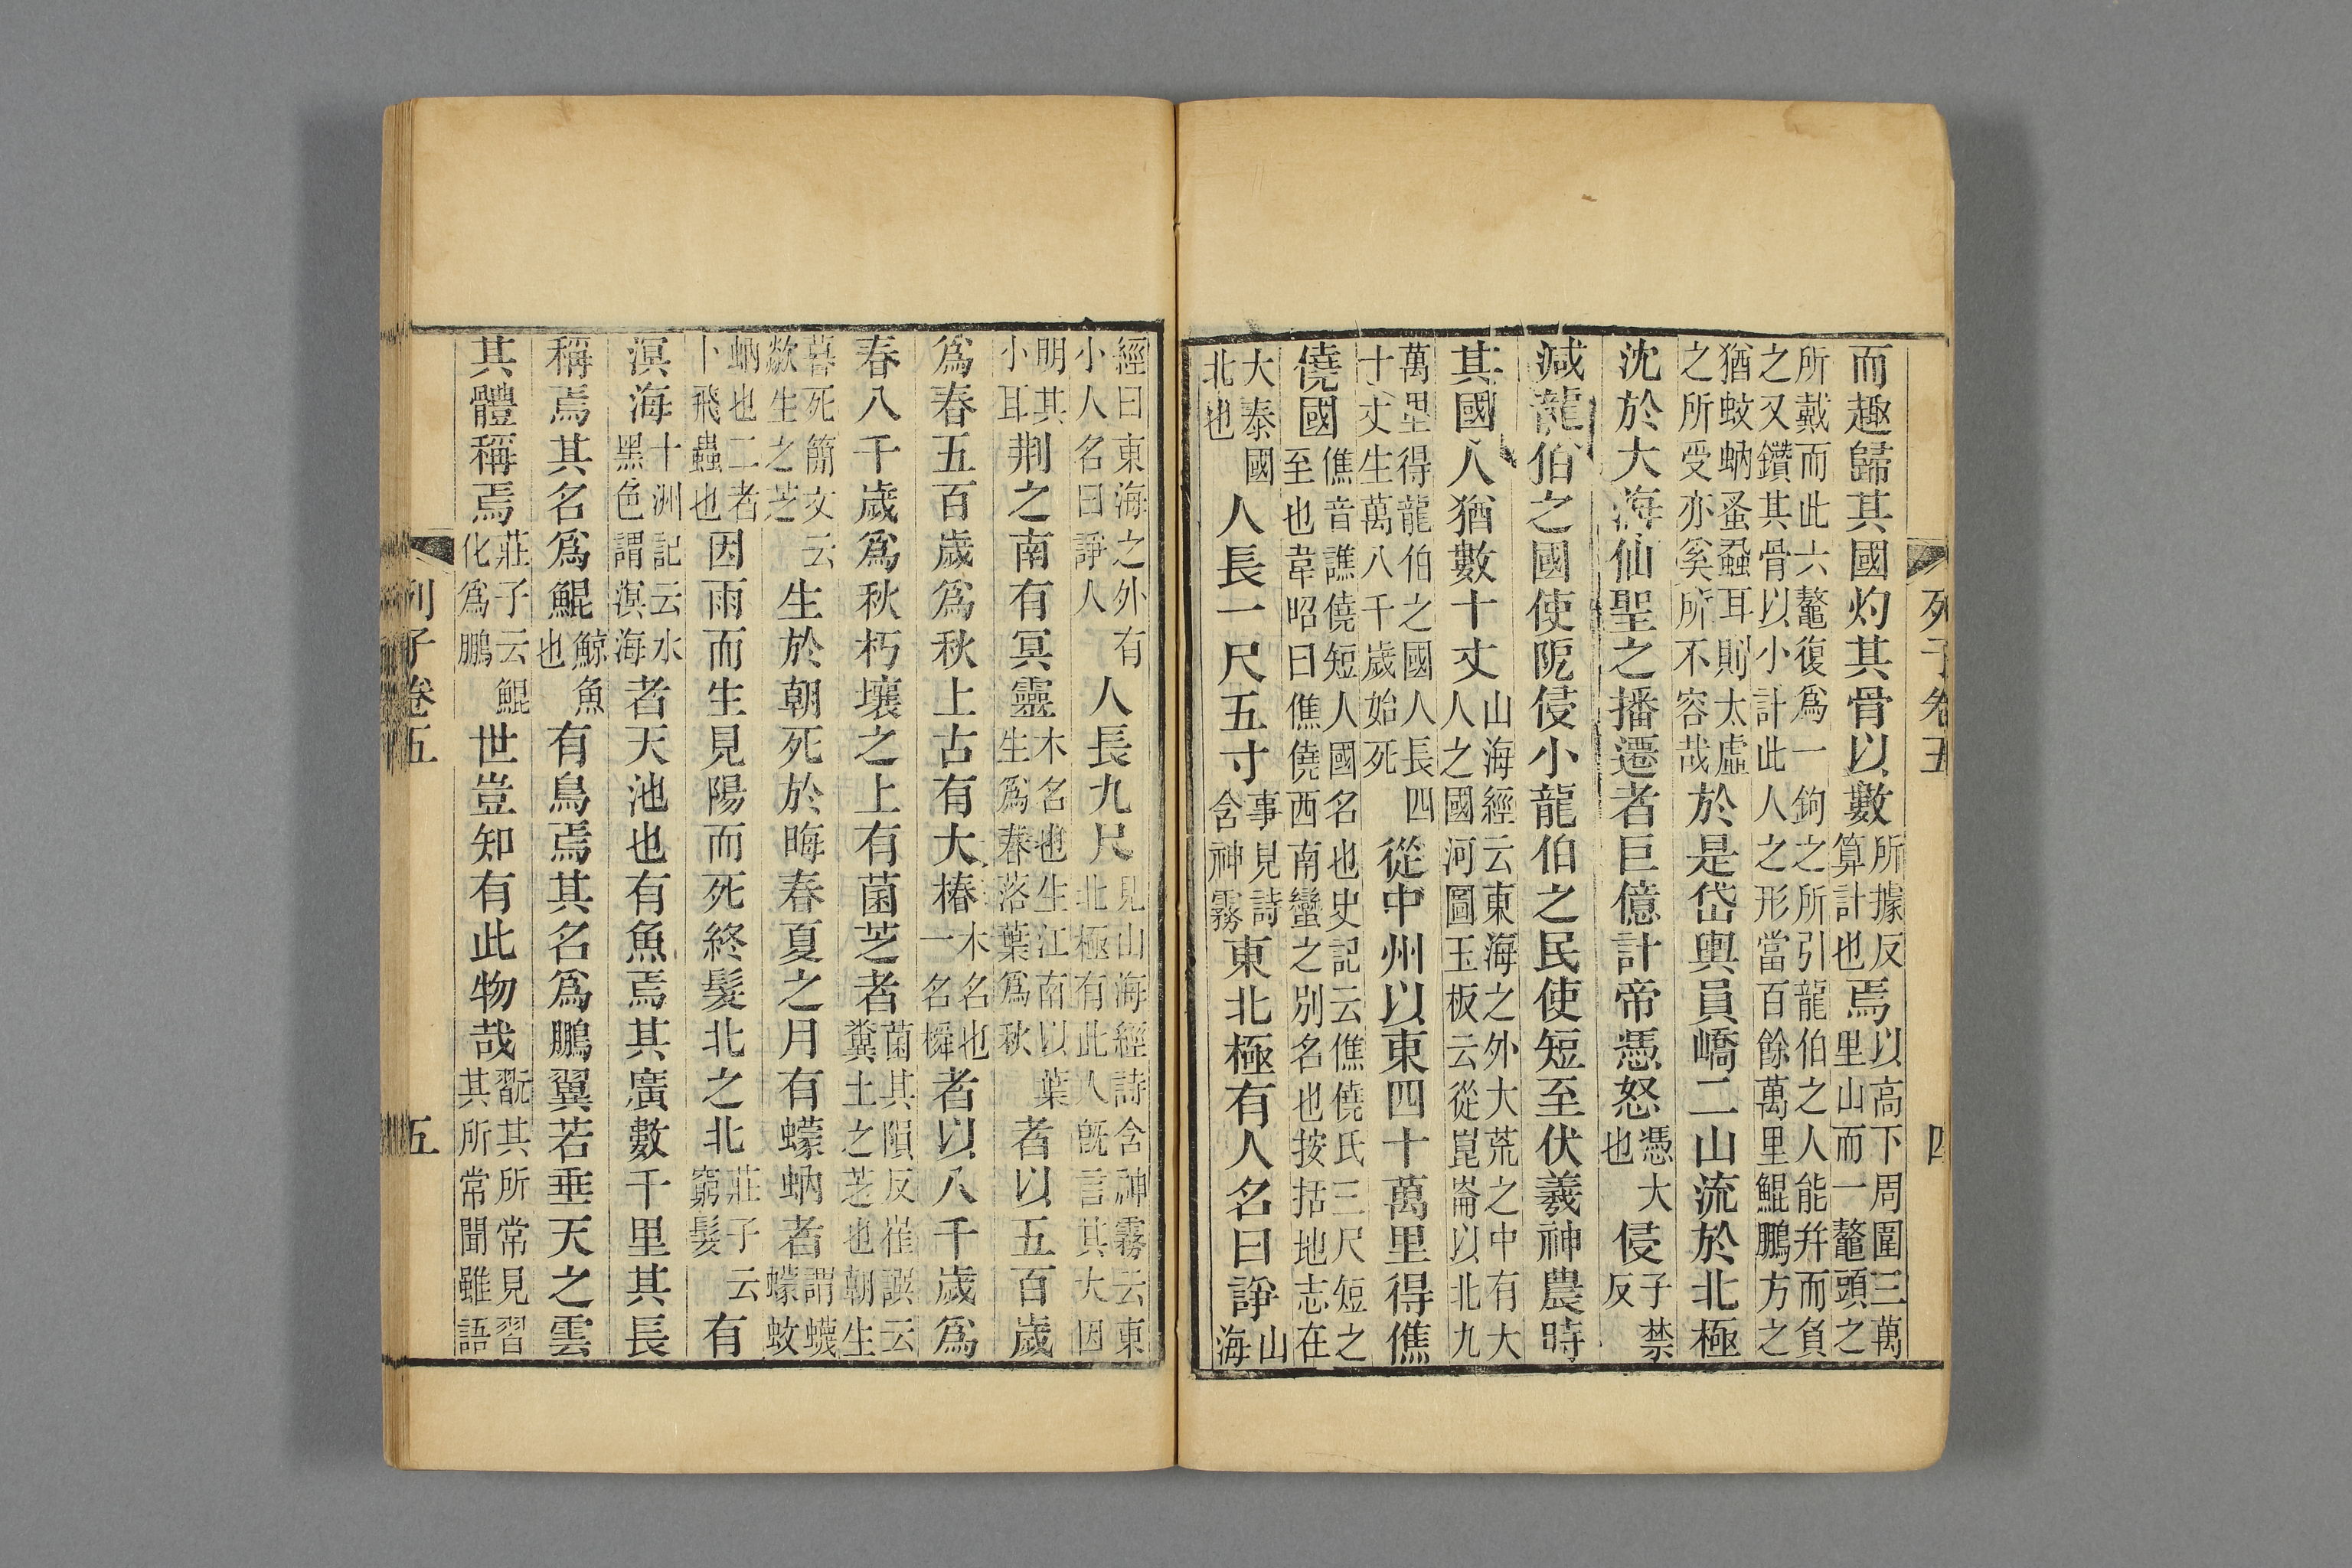 列子卷五 四
而趣歸其國灼其骨以數所據反算計也焉以高下周圍三萬里山而一鼇頭之
所戴而此六鼇復爲一鉤之所引龍伯之人能幷而負
之又鑽其骨以小計此人之形當百餘萬里鯤鵬方之
猶蚊蚋蚤蝨耳則太虛之所受亦奚所不容哉於是岱輿員嶠二山流於北極
沈於大海仙聖之播遷者巨億計帝憑怒憑大也侵子禁反
減龍伯之國使阨侵小龍伯之民使短至伏羲神農時
其國人猶數十丈山海經云東海之外大荒之中有大人之國河圖玉板云從崑崙以北九
萬里得龍伯之國人長四十丈生萬八千歲始死從中州以東四十萬里得僬
僥國僬音譙僥短人國名也史記云僬僥氏三尺短之至也韋昭曰僬僥西南蠻之別名也按括地志在
大泰國北也人長一尺五寸事見詩含神霧東北極有人名曰諍山海
經曰東海之外有小人名曰諍人人長九尺見山海經詩含神霧云東北極有此人旣言其大因
明其小耳荆之南有冥靈木名也生江南以葉生爲春落葉爲秋者以五百歲
爲春五百歲爲秋上古有大椿木名也一名橓者以八千歲爲
春八千歲爲秋朽壤之上有菌芝者菌其隕反崔譔云糞土之芝也朝生
暮死簡文云歘生之芝生於朝死於晦春夏之月有蠓蚋者謂蠛蠓蚊
蚋也二者卜飛蟲也因雨而生見陽而死終髮北之北莊子云窮髮有
溟海十洲記云水黑色謂溟海者天池也有魚焉其廣數千里其長
稱焉其名爲鯤鯨魚也有鳥焉其名爲鵬翼若垂天之雲
其體稱焉莊子云鯤化爲鵬世豈知有此物哉翫其所常見習其所常聞雖語
列子卷五 五